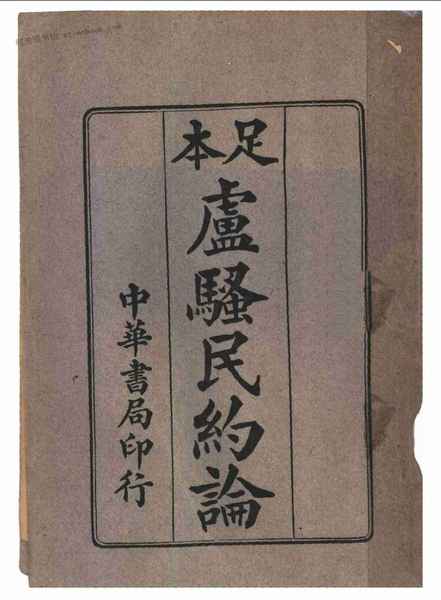 足本
盧騷民約論
中華書局印行